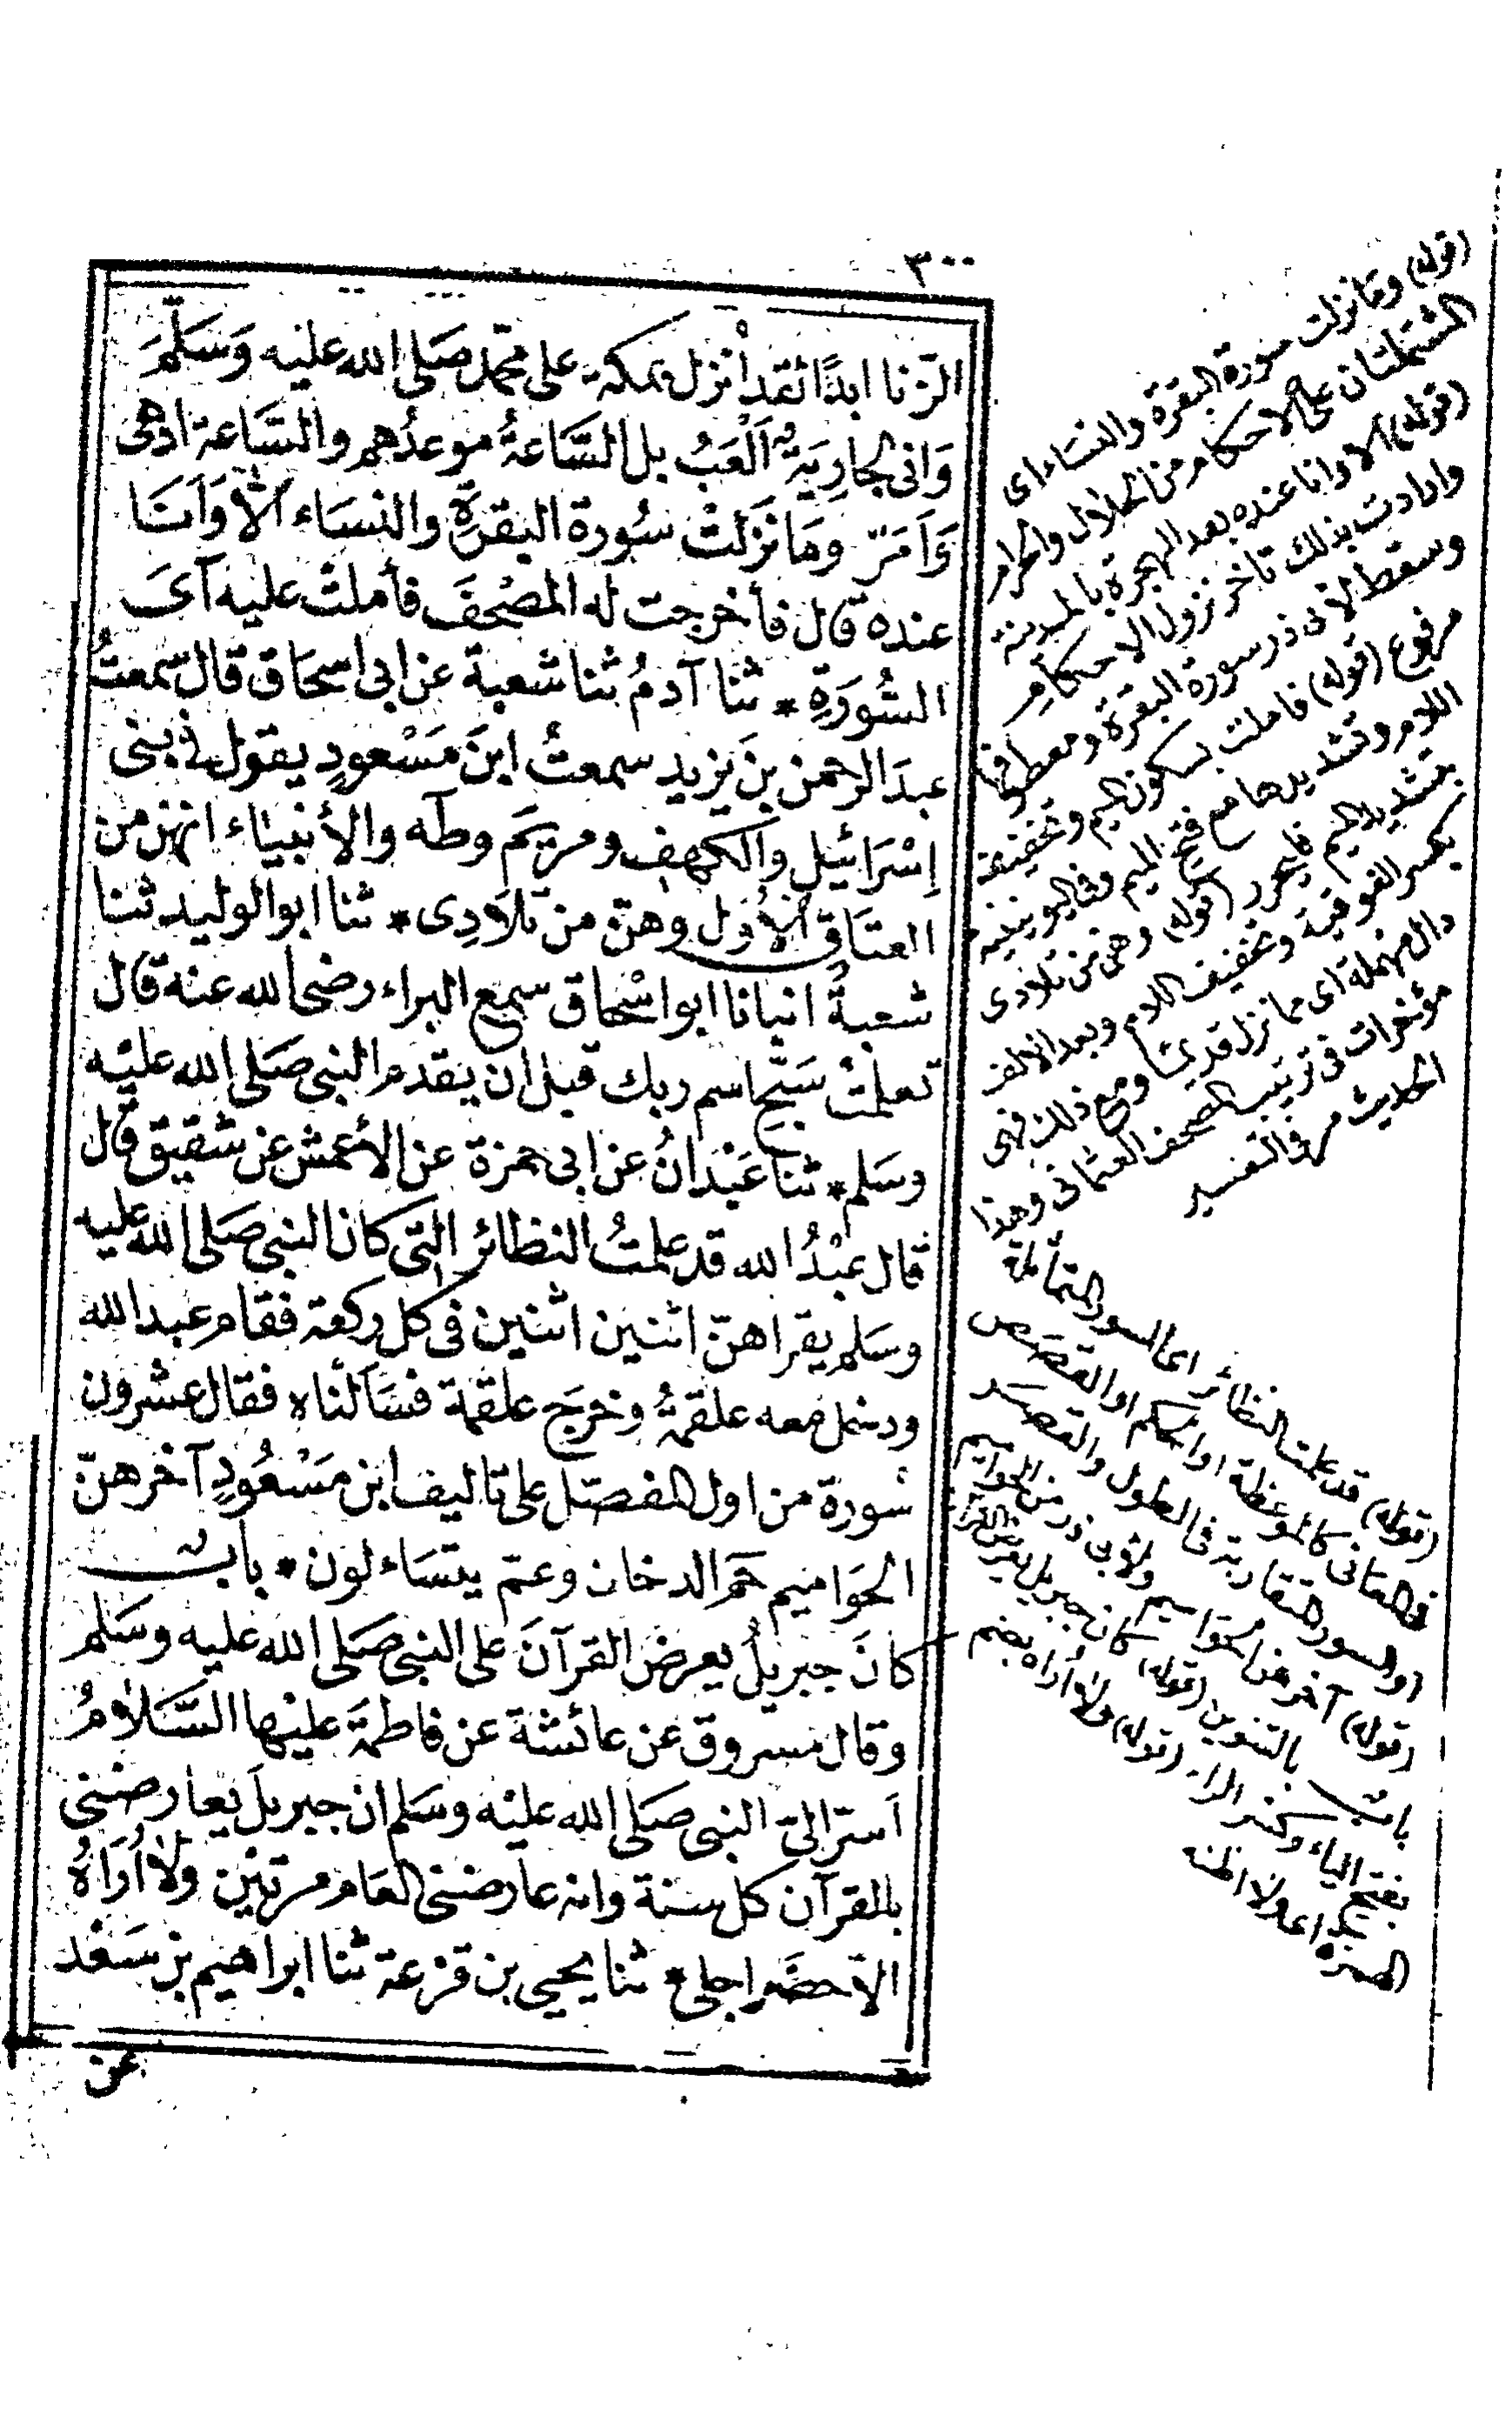 ٣٠٠
الزنا ابدًا لقد أنزل بمكة على محمد صَلى الله عليه وَسَلّمَ
وَانى لجارِيَةٌ اَلْعَبُ بل السَّاعةُ موعدُهم والسَّاعة ادهى
وَاَمَرّ وما نَزَلتْ سُورة البقرَةِ والنسَاء الّا وَاَنَا
عنده قال فأخرجت له المصْحَفَ فأملتْ عليه آىَ
السُّورَةِ * ثنا آدمُ ثنا شعبة عن ابى اسحَاق قال سمعتُ
عبدَ الرحمن بن يَزيد سمعتُ ابنَ مَسْعودٍ يقول فى بنى
إسْرَائيل والكهفِ ومريَم وطٓه والأنبيَاء انهن من
العتَاقِ الأُوَل وهنّ من تلَادِى * ثنا ابو الوليد ثنا
شعبةُ انبانا ابو اسْحاق سمع البراء رضى الله عنه قال
تعلمتْ سَبّح اسم ربك قبل ان يَقدم النبى صَلى الله عليْه
وسَلم * ثنا عَبْدَانُ عن ابى حمزة عن الأعمش عن شقيق قال
قال عبْدُ الله قد علمتُ النظائر التى كان النبى صَلى الله عليه
وسَلم يقراهنّ اثنين اثنين فى كل ركعة فقام عبد الله
ودخل معه علقمةُ وخرجَ علقمة فسَألناه فقال عشرون
سُورة من اول المفصّل على تاليف ابن مَسْعُودٍ آخرهنّ
الحوَاميم حٓمٓ الدخان وعمّ يتسَاءلون * بابٌ
كانَ جبريلُ يعرض القرآنَ على النبى صَلى الله عليه وسَلم
وقال مسروق عن عائشة عن فاطمَة عليْها السَّلامُ
اَسرّ الىّ النبى صَلى الله عليْه وسَلم ان جبريلَ يُعارضنى
بالقرآن كل سنة وانه عارضنى العَام مرتيْن ولا اُرَاهُ
الاّ حضَر اجلى * ثنا يحيى بن قزعة ثنا ابراهيم بن سَعْد
عن
(قوله) وما نزلت سورة البقرة والنساء اى
المشتملتان على الاحكام من الحلال والحرام
(قوله) الا وانا عنده بعد الهجرة بالمدينة
وارادت بذلك تاخر نزول الاحكام
وسقط لابى ذر سورة البقرة ومعطوفها
مرفوع (قوله) فاملت بسكون الميم وتخفيف
اللام وتشديدها مع فتح الميم وفى اليونينية
بتشديد الميم فليحرر (قوله) وهن من تلادى
بكسر الفوقية وتخفيف اللام وبعد الالف
دال مهملة اى مما نزل قديما ومع ذلك فهى
مؤخرات فى ترتيب المصحف العثمانى وهذا
الحديث مر فى التفسير
(قوله) قد علمت النظائر اى السور المتماثلة
فى المعانى كالموعظة او الحكم او القصص
او السور المتقاربة فى الطول والقصر
(قوله) آخرهن الحواميم ولابى ذر من الحواميم
باب بالتنوين (قوله) كان جبريل يعرض القرآن
بفتح الياء وكسر الراء (قوله) ولا أراه بضم
الهمزة اى ولا اظنه